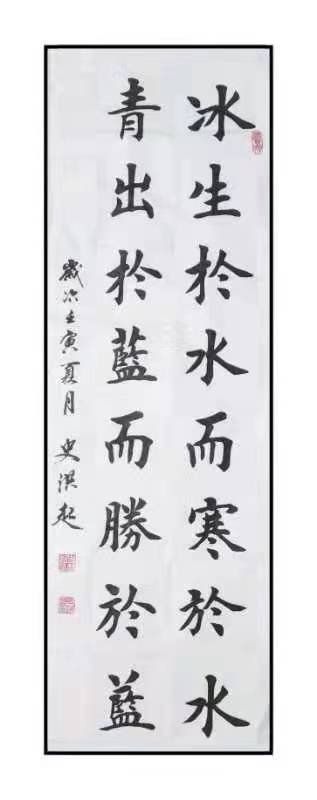 冰生於水而寒於水
青出於藍而勝於藍
歲次壬寅夏月 史洪起